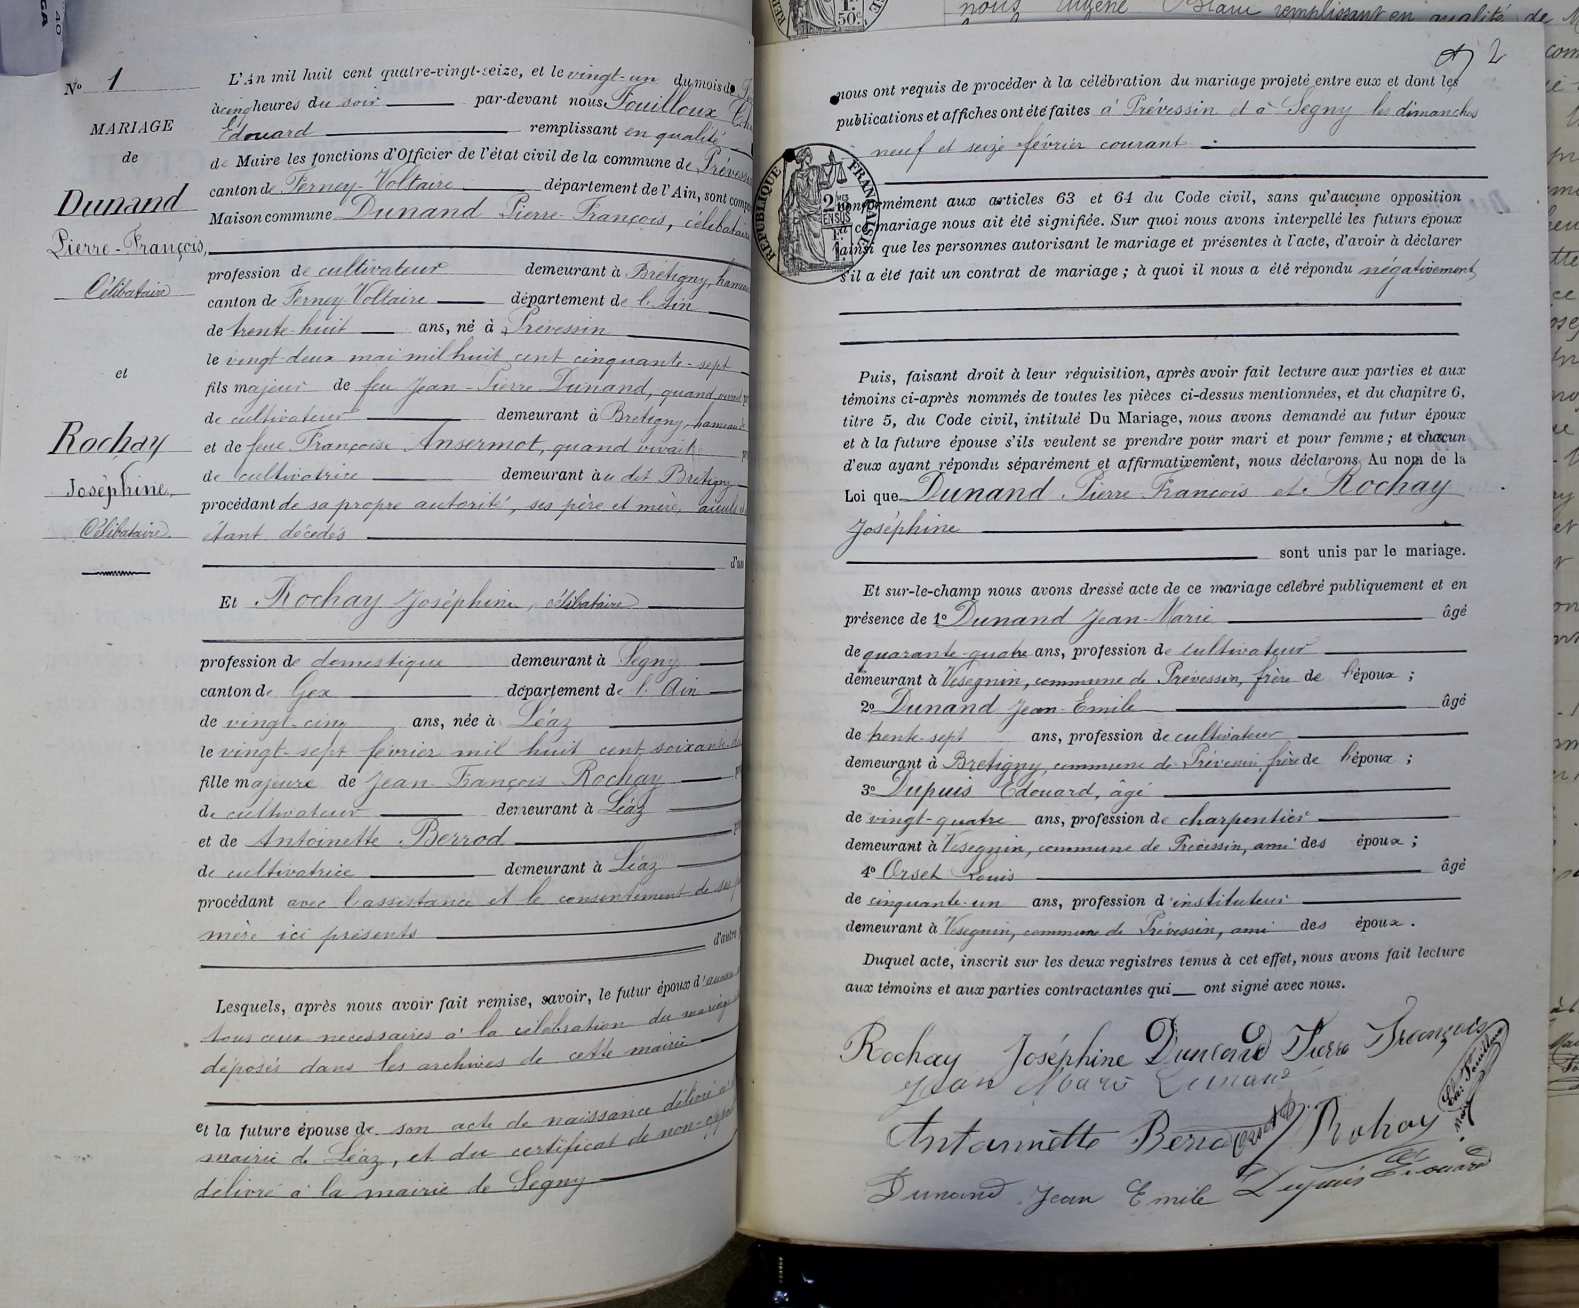 No 1
MARIAGE
de
Dunand
Pierre-François,
Célibataire
et
Rochay
Joséphine,
Célibataire
L'An mil huit cent quatre-vingt-seize, et le vingt-un du mois de
à cinq heures du soir par-devant nous Fouilloux
Edouard remplissant en qualité
de Maire les fonctions d'Officier de l'état civil de la commune de Prévessin
canton de Ferney-Voltaire département de l'Ain, sont comp
Maison commune Dunand Pierre-François, célibataire
profession de cultivateur demeurant à Brétigny, hameau
canton de Ferney-Voltaire département de l'Ain
de trente-huit ans, né à Prévessin
le vingt-deux mai mil huit cent cinquante-sept
fils majeur de feu Jean-Pierre Dunand, quand vivait
de cultivateur demeurant à Brétigny, hameau
et de feue Françoise Ansermot, quand vivait
de cultivatrice demeurant au dit Brétigny
procédant de sa propre autorité, ses père et mère, aïeuls
étant décédés
d'un
Et Rochay Joséphine, célibataire
profession de domestique demeurant à Segny
canton de Gex département de l'Ain
de vingt-cinq ans, née à Léaz
le vingt-sept février mil huit cent soixante
fille majeure de Jean François Rochay
de cultivateur demeurant à Léaz
et de Antoinette Berrod
de cultivatrice demeurant à Léaz
procédant avec l'assistance et le consentement de ses
mère ici présents
d'autre
Lesquels, après nous avoir fait remise, savoir, le futur époux d'aucun
tous ceux nécessaires à la célébration du mariage
déposés dans les archives de cette mairie
et la future épouse de son acte de naissance délivré à
mairie de Léaz, et du certificat de non-oppo
délivré à la mairie de Segny
2
nous ont requis de procéder à la célébration du mariage projeté entre eux et dont les
publications et affiches ont été faites à Prévessin et à Segny les dimanches
neuf et seize février courant
RÉPUBLIQUE FRANÇAISE
conformément aux articles 63 et 64 du Code civil, sans qu'aucune opposition
à ce mariage nous ait été signifiée. Sur quoi nous avons interpellé les futurs époux
ainsi que les personnes autorisant le mariage et présentes à l'acte, d'avoir à déclarer
s'il a été fait un contrat de mariage ; à quoi il nous a été répondu négativement
Puis, faisant droit à leur réquisition, après avoir fait lecture aux parties et aux
témoins ci-après nommés de toutes les pièces ci-dessus mentionnées, et du chapitre 6,
titre 5, du Code civil, intitulé Du Mariage, nous avons demandé au futur époux
et à la future épouse s'ils veulent se prendre pour mari et pour femme ; et chacun
d'eux ayant répondu séparément et affirmativement, nous déclarons, Au nom de la
Loi que Dunand Pierre François et Rochay
Joséphine
sont unis par le mariage.
Et sur-le-champ nous avons dressé acte de ce mariage célébré publiquement et en
présence de 1o Dunand Jean-Marie âgé
de quarante-quatre ans, profession de cultivateur
demeurant à Vésegnin, commune de Prévessin, frère de l'époux ;
2o Dunand Jean-Emile âgé
de trente-sept ans, profession de cultivateur
demeurant à Brétigny, commune de Prévessin, frère de l'époux ;
3o Dupuis Edouard, âgé
de vingt-quatre ans, profession de charpentier
demeurant à Vésegnin, commune de Prévessin, ami des époux ;
4o Orset Louis âgé
de cinquante-un ans, profession d'instituteur
demeurant à Vésegnin, commune de Prévessin, ami des époux.
Duquel acte, inscrit sur les deux registres tenus à cet effet, nous avons fait lecture
aux témoins et aux parties contractantes qui ont signé avec nous.
Rochay Joséphine Dunand Pierre François
Jean Marie Dunand
Antoinette Berrod Orset Rochay
Ed. Fouilloux
Maire
Dunand Jean Emile Dupuis Edouard